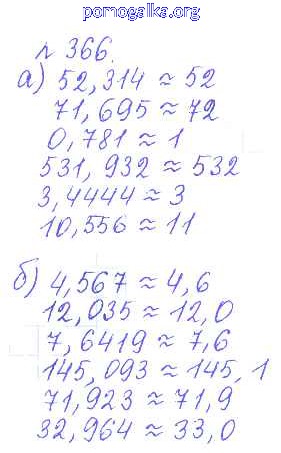 pomogalka.org
№ 366.
а) 52,314 ≈ 52
71,695 ≈ 72
0,781 ≈ 1
531,932 ≈ 532
3,4444 ≈ 3
10,556 ≈ 11
б) 4,567 ≈ 4,6
12,035 ≈ 12,0
7,6419 ≈ 7,6
145,093 ≈ 145,1
71,923 ≈ 71,9
32,964 ≈ 33,0